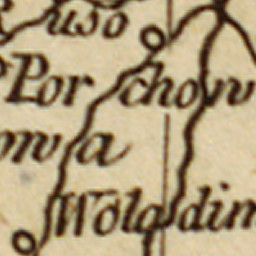 uso
Porchow
owa
Wolodim